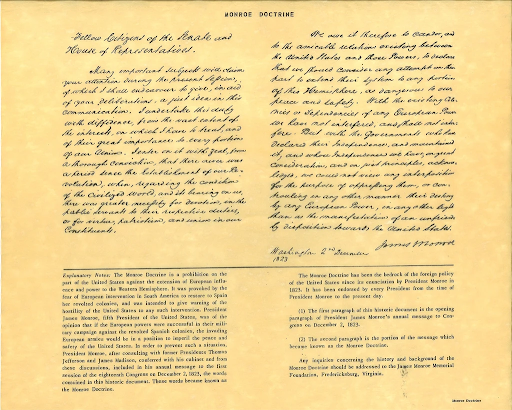 MONROE DOCTRINE
Fellow Citizens of the Senate and
House of Representatives.
Many important subjects will claim
your attention during the present Session,
of which I shall endeavour to give, in aid
of your deliberations, a just idea in this
communication. I undertake this duty
with diffidence, from the vast extent of
the interests, on which I have to treat, and
of their great importance to every portion
of our Union. I enter on it with zeal, from
a thorough conviction, that there never was
a period since the Establishment of our Re-
volution, when, regarding the condition
of the civilized world, and its bearing on us,
there was greater necessity for devotion, in the
public servants to their respective duties,
or for virtue, patriotism, and union in our
Constituents.
We owe it therefore to candor, and
to the amicable relations existing between
the United States and those Powers, to declare
that we should consider any attempt on their
part to extend their system to any portion
of this Hemisphere, as dangerous to our
peace and safety. With the existing Co-
lonies or Dependencies of any European Power
we have not interfered, and shall not inter-
fere. But with the Governments who have
declared their Independence, and maintained
it, and whose Independence we have, on great
consideration, and on just principles, acknow-
ledged, we could not view any interposition
for the purpose of oppressing them, or con-
trouling in any other manner, their destiny
by any European Power, in any other light
than as the manifestation of an unfriend-
ly disposition towards the United States.
James Monroe
Washington 2nd December
1823
Explanatory Notes: The Monroe Doctrine is a prohibition on the
part of the United States against the extension of European influ-
ence and power to the Western Hemisphere. It was provoked by the
fear of European intervention in South America to restore to Spain
her revolted colonies, and was intended to give warning of the
hostility of the United States to any such intervention. President
James Monroe, fifth President of the United States, was of the
opinion that if the European powers were successful in their mili-
tary campaign against the revolted Spanish colonies, the invading
European armies would be in a position to imperil the peace and
safety of the United States. In order to prevent such a situation,
President Monroe, after consulting with former Presidents Thomas
Jefferson and James Madison, conferred with his cabinet and from
these discussions, included in his annual message to the first
session of the eighteenth Congress on December 2, 1823, the words
contained in this historic document. These words became known as
the Monroe Doctrine.
The Monroe Doctrine has been the bedrock of the foreign policy
of the United States since its enunciation by President Monroe in
1823. It has been endorsed by every President from the time of
President Monroe to the present day.
(1) The first paragraph of this historic document is the opening
paragraph of President James Monroe's annual message to Con-
gress on December 2, 1823.
(2) The second paragraph is the portion of the message which
became known as the Monroe Doctrine.
Any inquiries concerning the history and background of the
Monroe Doctrine should be addressed to the James Monroe Memorial
Foundation, Fredericksburg, Virginia.
Monroe Doctrine